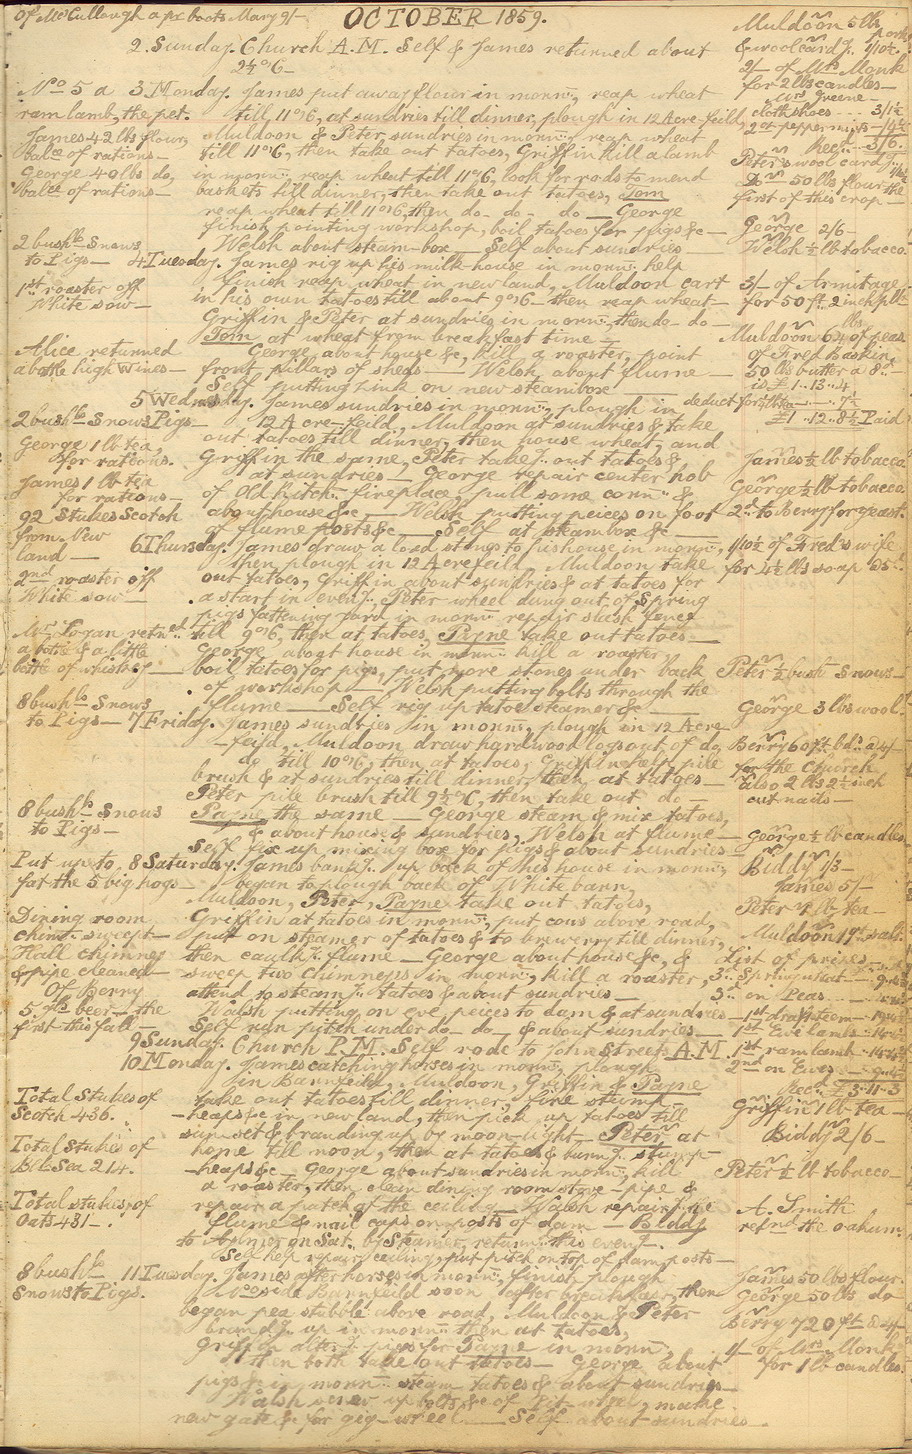 Of McCullough a pr boots Mary 9/-
OCTOBER 1859.
2 Sunday. Church A.M. Self & James returned about
Muldoon 5 lbs pork
& woolcard'g. 1/10½.
2/- of Mrs Monk
for 2 lbs candles-
Mrs Greene
cloth shoes 3/1½
2 oz peppermints - 4½
Recd. - 3/6.
No 5 a
ram lamb, the pet.
3 Monday. James put away flour in mornn., reap wheat
till 11 o'c, at sundries till dinner, plough in 12 Acre feild,
James 42 lbs flour,
balce of rations -
George 40 lbs do,
balce of rations -
Muldoon & Peter, sundries in mornn. reap wheat
till 11 o'c, then take out tatoes, Griffin kill a lamb
in mornn. reap wheat till 11 o'c, look for rods to mend
baskets till dinner, then take out tatoes, Tom
reap wheat till 11 o'c, then do - do - do - George
finish painting workshop, boil tatoes for pigs &c -
Welsh about steam-box - Self about sundries -
Peter's wool card'g.
Do 50 lbs flour, the
first of this crop -
George 2/6 -
Welsh ½ lb tobacco.
2 bushls Snows
to Pigs -
1st roaster off
White sow -
4 Tuesday. James rig up his milk-house in mornn. help
finish reap wheat in new land, Muldoon cart
in his own tatoes till about 9 o'c - then reap wheat -
Griffin & Peter at sundries in mornn., then do - do -
Tom at wheat from breakfast time -
George about house &c, kill a roaster, point
front pillars of sheds - Welsh about flume -
Self putting zink on new steambox -
3/- of Armitage
for 50 ft. 2 inch plk
Muldoon 6¼ lbs of peas
of Fred Baskin,
50 lbs butter a 8d -
is £1..13..4
deduct for 7½
£1..12..8½ Paid
Alice returned
a bottle high wines -
2 bushls Snows Pigs -
George 1 lb tea,
for rations.
James 1 lb tea
for rations -
92 Stukes Scotch
from New
land -
5 Wednesday. James sundries in mornn., plough in
12 Acre - feild, Muldoon at sundries & take
out tatoes till dinner, then house wheat, and
Griffin the same, Peter take'g. out tatoes &
at sundries - George repair center hob
of Old kitchn. fireplace, pull some corn &
about house &c - Welsh putting peices on foot
of flume posts &c - Self at steambox &c -
James ½ lb tobacco
George ½ lb tobacco
2d to Berry for yeast.
2nd roaster off
White sow -
Mr Logan retnd.
a bottle & a little
bottle of whiskey -
6 Thursday. James draw a load stones to his house in mornn.,
then plough in 12 Acre feild, Muldoon take
out tatoes, Griffin about sundries & at tatoes for
a start in even'g., Peter wheel dung out of Spring
pigs fattening yard in mornn. repair slash fence
till 9 o'c, then at tatoes, Payne take out tatoes -
George about house in mornn. kill a roaster,
boil tatoes for pigs, put more stones under back
of workshop - Welsh putting bolts through the
flume - Self rig up tatoe steamer &c -
1/10½ of Fred's wife
for 4½ lbs soap a 5d.
Peter ½ bush Snows -
8 bushls Snows
to Pigs -
7 Friday. James sundries in mornn., plough in 12 Acre
- feild, Muldoon draw hardwood logs out of do,
do till 10 o'c, then at tatoes, Griffin help pile
brush & at sundries till dinner, then at tatoes -
Peter pile brush till 9½ o'c, then take out do -
Payne the same - George steam & mix tatoes,
& about house & sundries, Welsh at flume -
Self fix up mixing box for pigs & about sundries -
George 3 lbs wool
Berry 60 ft bds a 4/-
for the Church
also 2 lbs 2½ inch
cut nails -
George ½ lb candles
8 bushls Snows
to Pigs -
Put up to
fat the 5 big hogs -
Dining room
chimn. swept -
Hall chimney
& pipe cleaned -
Of Berry
5 glls beer - the
first this fall -
8 Saturday. James bank'g. up back of his house in mornn.,
began to plough back of White barn,
Muldoon, Peter, Payne take out tatoes,
Griffin at tatoes in mornn., put cows above road,
put on steamer of tatoes & to brewerry till dinner,
then caulk'g. flume - George about house &c, &
sweep two chimneys in mornn, kill a roaster,
attend to steam'g. tatoes & about sundries -
Walsh putting on eve peices to dam & at sundries -
Self run pitch under do - do - & about sundries -
Biddy 1/3 -
James 5/-
Peter ¼ lb tea -
Muldoon 19 lbs salt.
List of prizes -
3rd Spring wheat
3rd on Peas
1st draft team
1st Ewe lambs
1st ram lamb
2nd on Ewes
Recd. £3-11-3
9 Sunday. Church P.M. Self rode to John Streets A.M.
Total Stukes of
Scotch 436.
Total Stukes of
Blk Sea 214.
Total stukes of
Oats 431 -
10 Monday. James catching horses in mornn., plough
in Barnfeild, Muldoon, Griffin & Payne
take out tatoes till dinner, fire stump -
- heaps &c in new land, then pick up tatoes till
sun-set & branding up by moon-light - Peter at
home till noon, then at tatoes & burn'g. stump -
- heaps &c - George about sundries in mornn., kill
a roaster, then clean dining room stove - pipe &
repair a patch of the ceiling - Walsh repair'g. the
flume & nail caps on posts of dam - Biddy
to Aylmer on Sat. by Steamer, return'd this even'g.
Self help repair ceiling, put pitch on top of dam posts -
Griffin 1 lb tea -
Biddy 2/6 -
Peter ½ lb tobacco -
A. Smith
retnd. the oakum.
8 bushls
Snows to Pigs.
11 Tuesday. James after horses in mornn., finish plough
side Barnfeild soon after breakfast, then
began pea stubble above road, Muldoon & Peter
brand'g. up in mornn. then at tatoes,
Griffin after'g. pigs for Payne in mornn.
then both take out tatoes - George about
pigs in mornn. steam tatoes & about sundries -
Walsh screw up bolts &c of Pit-wheel, make
new gate &c for gig-wheel - Self about sundries -
James 50 lbs flour.
George 50 lbs do
Berry 720 ft a 4/-
1/- of Mrs Monk
for 1 lb candles.